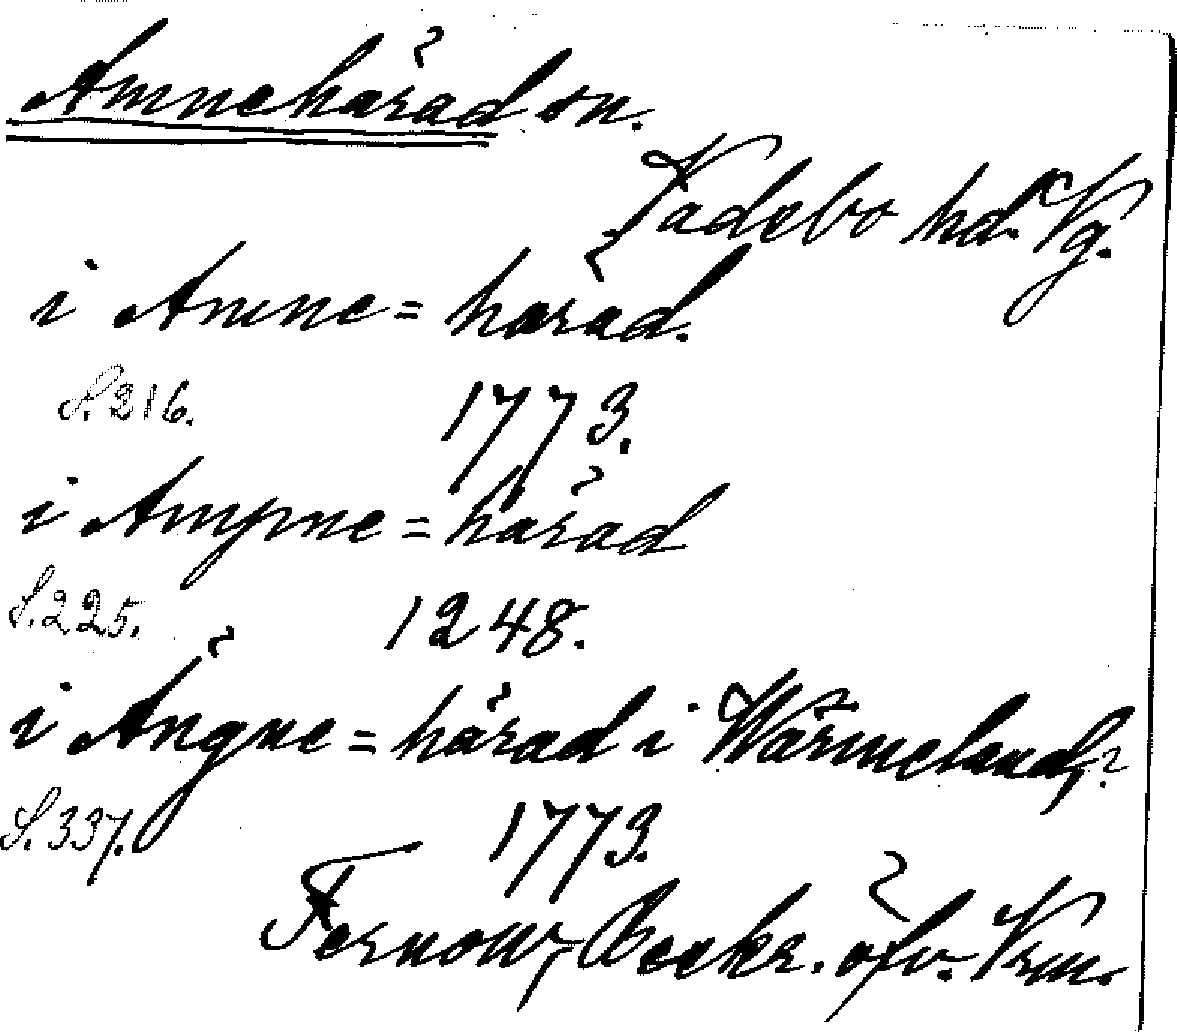 Amnehärad sn.
Vadsbo hd. Vg.
i Amne=härad.
S. 216. 1773.
i Ampne=härad
S. 225. 1248.
i Ängne=härad i Wärmeland,
S. 337. 1773.
Fernow, Beskr. öfv. Vrm.